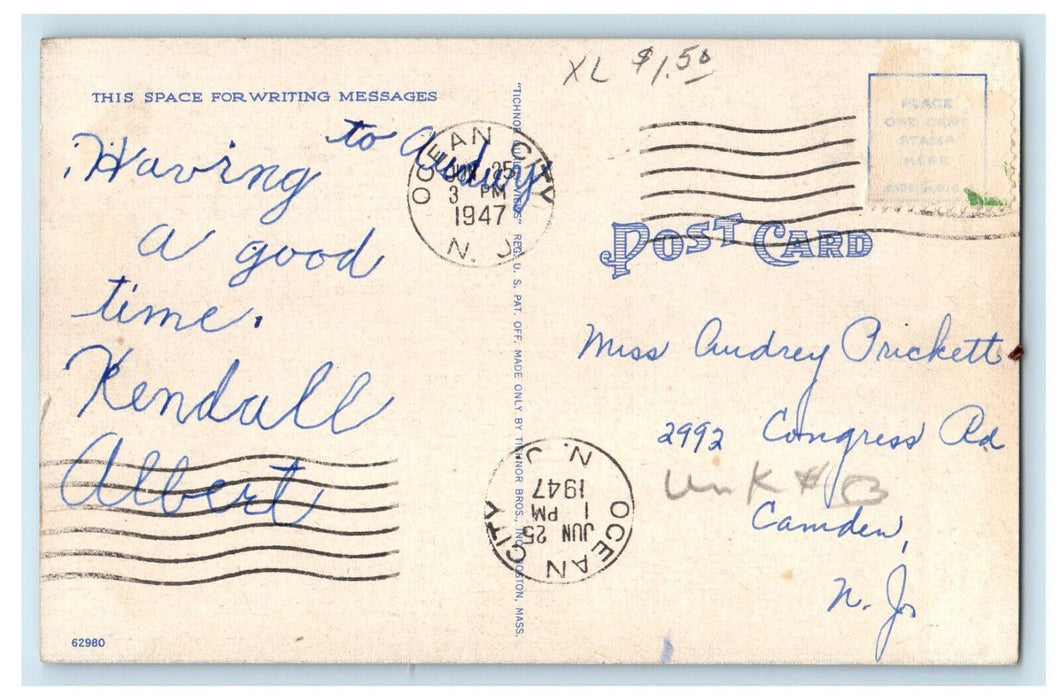 XL $1.50
THIS SPACE FOR WRITING MESSAGES
to Audrey
Having
a good
time.
Kendall
Albert
OCEAN CITY
JUN 25
3 PM
1947
N. J.
"TICHNOR QUALITY VIEWS" REG. U. S. PAT. OFF. MADE ONLY BY TICHNOR BROS., INC., BOSTON, MASS.
PLACE
ONE CENT
STAMP
HERE
POST CARD
Miss Audrey Prickett
2992 Congress Rd
Unk #
Camden,
N. J.
OCEAN CITY
JUN 25
1 PM
1947
N. J.
62980